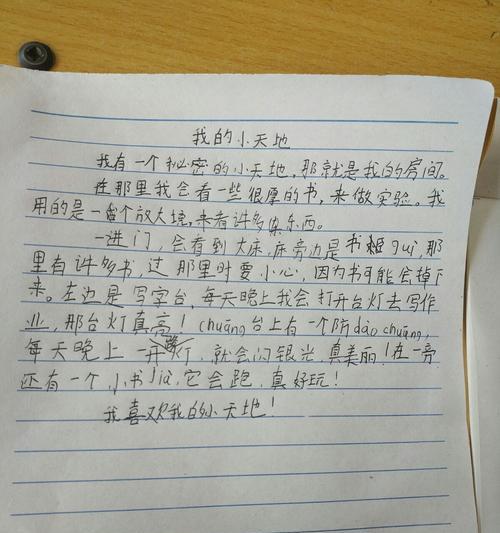 我的小天地
我有一个秘密的小天地,那就是我的房间。
在那里我会看一些很厚的书,来做实验。我
用的是一个放大境,来看许多东西。
一进门,会看到大床,床旁边是书guì,那
里有许多书,过那里时要小心,因为书可能会掉下
来。左边是写字台,每天晚上我会打开台灯去写作
业,那台灯真亮!chuāng台上有一个防dào chuāng,
每天晚上一开灯,就会闪银光,真美丽!在一旁
还有一个小书jià,它会跑,真好玩!
我喜欢我的小天地!